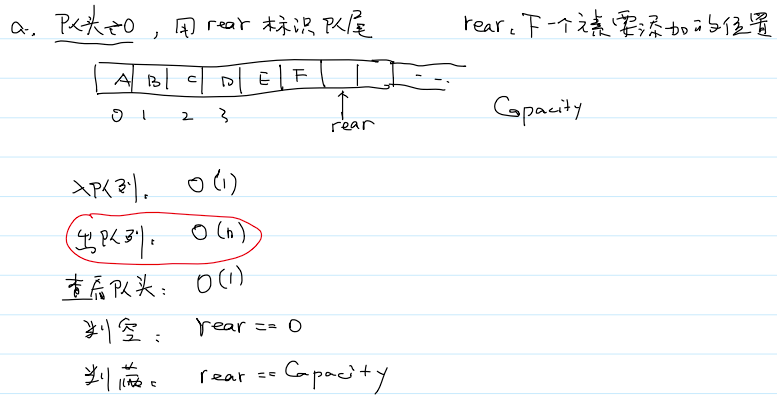 a. 队头→0，用 rear 标识队尾 rear：下一个元素要添加的位置
A B C D E F ...
0 1 2 3 rear Capacity
入队列： O(1)
出队列： O(n)
查看队头： O(1)
判空： rear == 0
判满： rear == Capacity